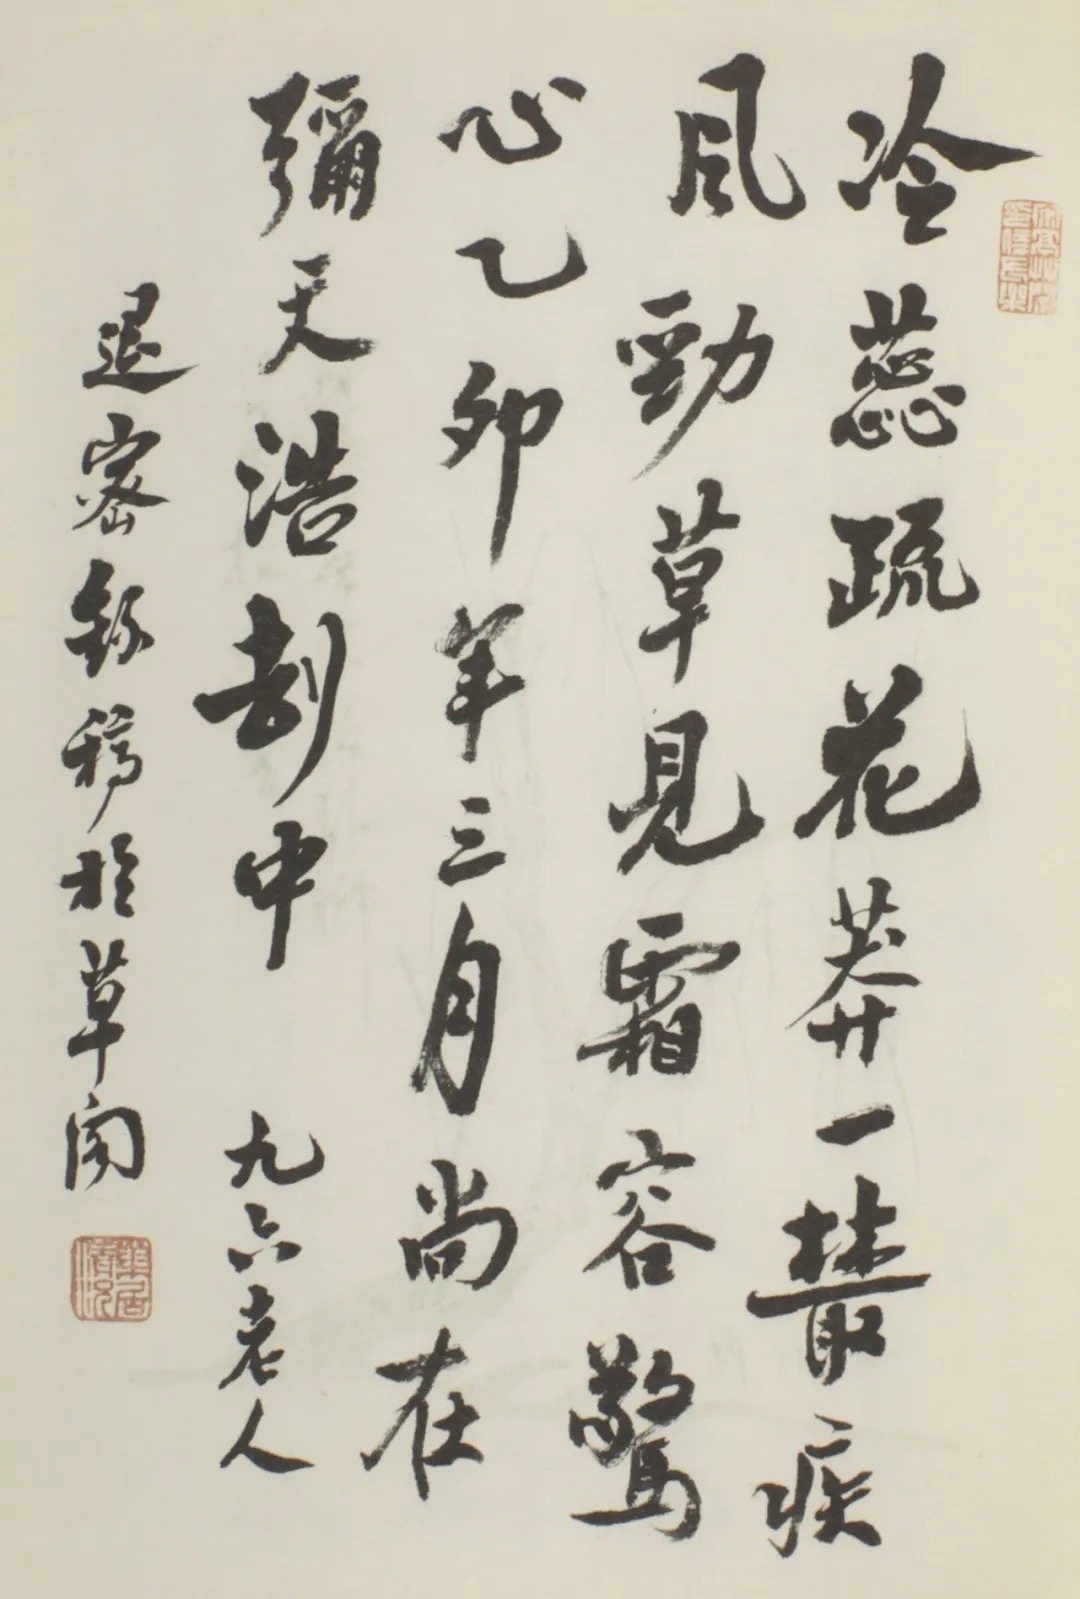 冷蕊疏花莽一叢疾
風勁草見霜容驚
心乙卯年三月尚在
彌天浩劫中
九六老人
退密錄稿於草閣